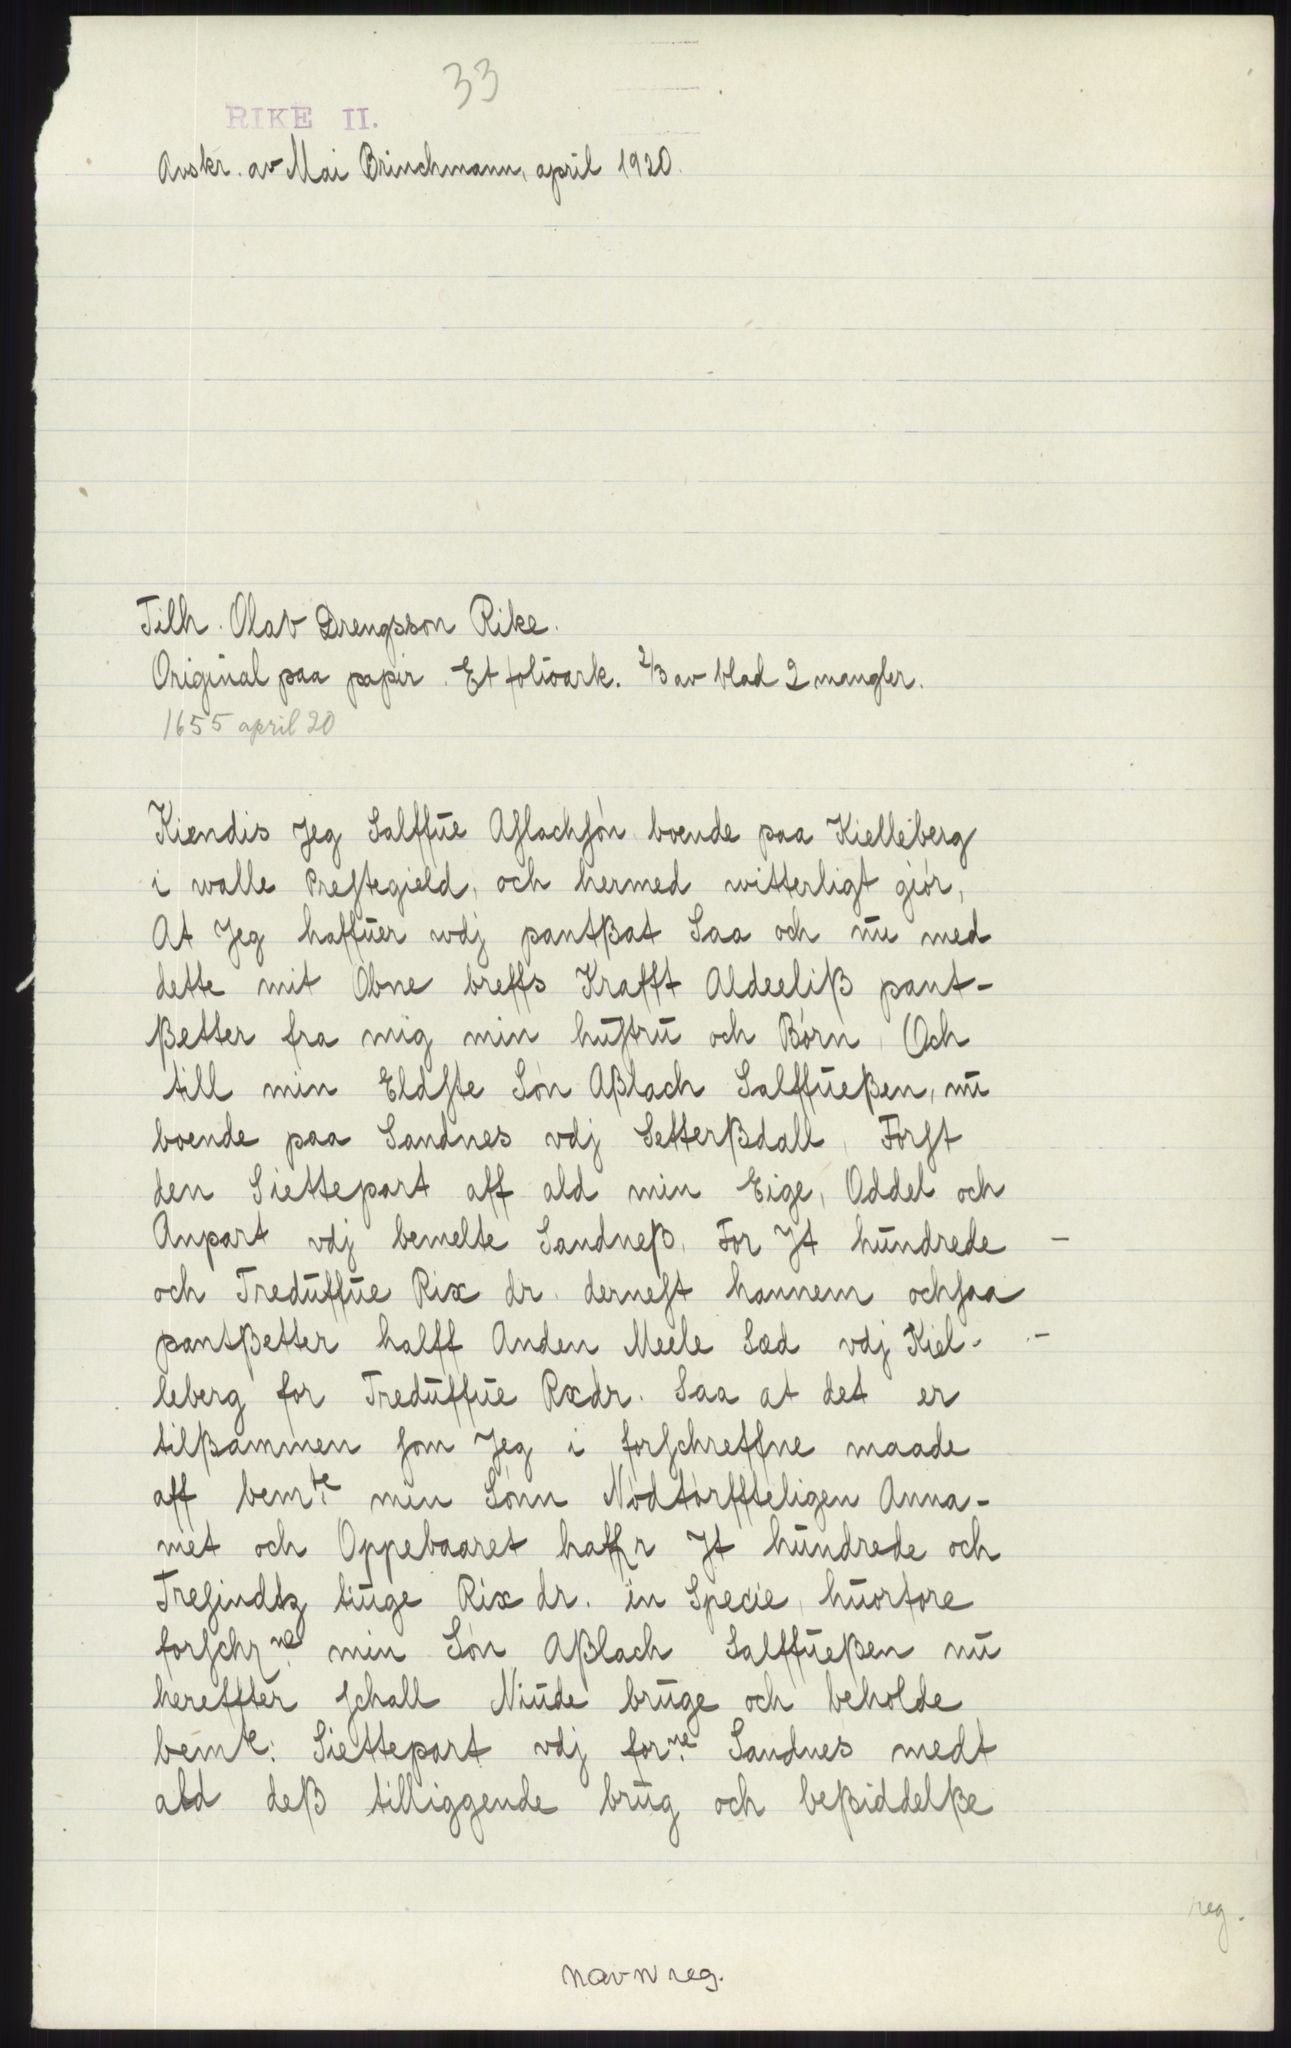 33
RIKE II.
Avskr. av Mai Brinchmann, april 1920.
Tilh. Olav Drengsson Rike.
Original paa papir. Et folioark. 2/3 av blad 2 mangler.
1655 april 20
Kiendis Jeg Salffue Aslachsøn boende paa Kielleberg
i walle Prestegield, och hermed witterligt giør,
At Jeg haffuer wdj pantßat Saa och nu med
dette mit Obne breffs Krafft Aldeeliß pant-
ßetter fra mig min hustru och Børn, Och
till min Eldste Søn Aßlach Salffueßen, nu
boende paa Sandnes vdj Setterßdall, Først
den Siettepart aff ald min Eige, Oddel och
Anpart vdj bemelte Sandneß, For Jt hundrede -
och Treduffue Rix dr. dernest hannem ochsaa
pantßetter halff Anden Meele Sæd vdj Kiel- -
leberg for Treduffue Rxdr. Saa at det er
tilßammen som Jeg i forschreffne maade
aff bemte: min Sønn Nødtørffteligen Anna-
met och Oppebaaret haffr Jt hundrede och
Tresindtz tiuge Rix dr. in Specie, huorfore
forschrne: min Søn Aßlach Salffueßen nu
hereffter schall Niude bruge och beholde
bemte: Siettepart vdj forne: Sandnes medt
ald deß tilliggende brug och beßiddelße
reg.
navnreg.